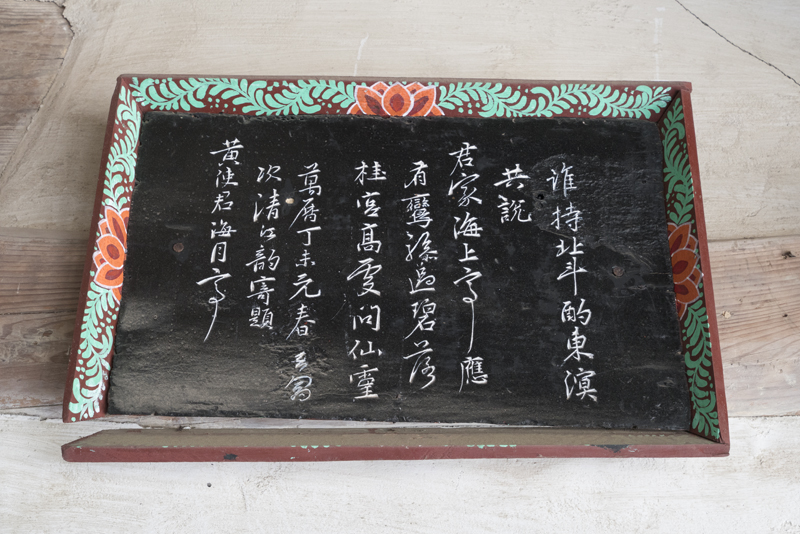 誰持北斗酌東溟
共說
君家海上亭應
有鸞驂過碧落
桂宮高處問仙靈
萬曆丁未元春
次淸江韵寄題
黃使君海月亭